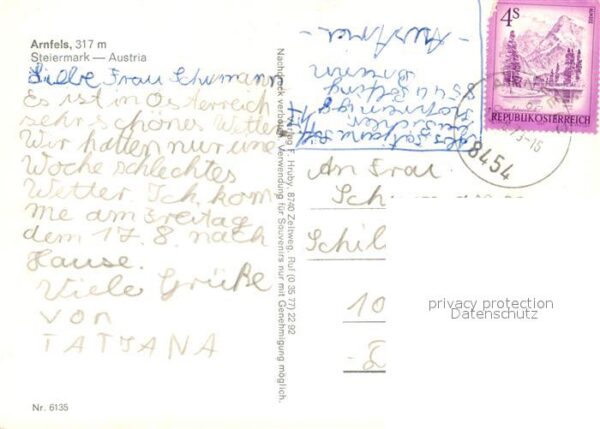 Arnfels, 317 m
Steiermark — Austria
Liebe Frau Schumann
Es ist in Österreich
sehr schönes Wetter
Wir hatten nur eine
Woche schlechtes
Wetter. Ich kom
me am Freitag
dem 17. 8. nach
Hause.
Viele Grüße
von
TATJANA
Nr. 6135
Nachdruck verboten. Verwendung für Souvenirs nur mit Genehmigung möglich.
Verlag F. Hruby, 8740 Zeltweg, Ruf (0 35 77) 22 92
- Austria -
4S
REPUBLIK ÖSTERREICH
8454
An Frau
Sch
Schil
10
privacy protection
Datenschutz